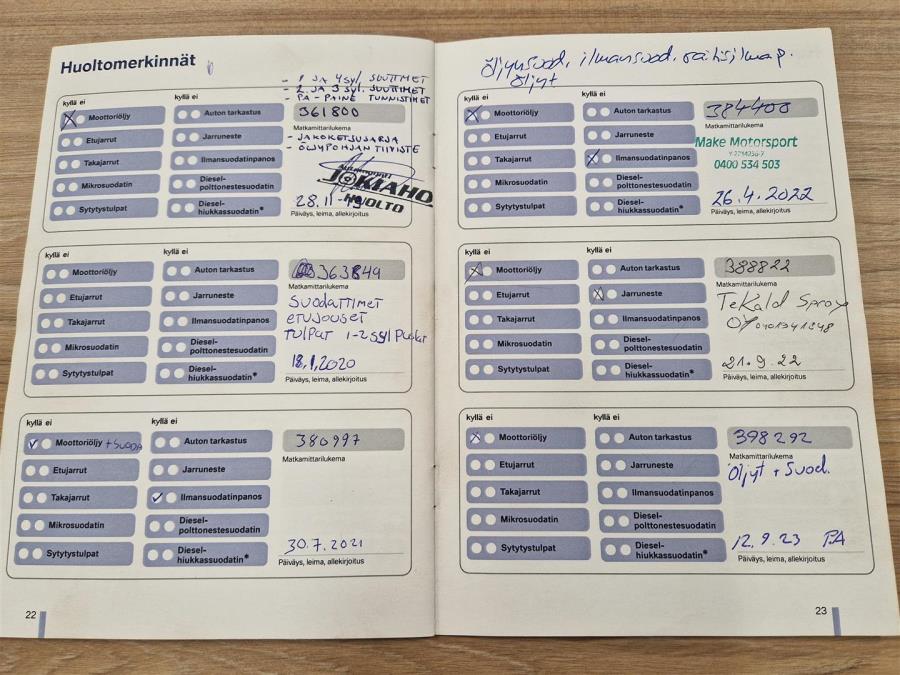 Huoltomerkinnät
- 1 JA 4 syl, SUUTTIMET
- 2 JA 3 syl. SUUTTIMET
- PA-PAINE TUNNISTIMET
kyllä ei
kyllä ei
Moottoriöljy
Auton tarkastus
361800
Matkamittarilukema
Etujarrut
Jarruneste
- JAKOKETJUSARJA
- ÖLJYPOHJAN TIIVISTE
Takajarrut
Ilmansuodatinpanos
Mikrosuodatin
Diesel-
polttonestesuodatin
HUOLTO
Sytytystulpat
Diesel-
hiukkassuodatin*
28.11-19
Päiväys, leima, allekirjoitus
kyllä ei
kyllä ei
Moottoriöljy
Auton tarkastus
363849
Matkamittarilukema
Etujarrut
Jarruneste
SUODATTIMET
ETUJOUSET
Takajarrut
Ilmansuodatinpanos
TULPAT 1-2 syl
Mikrosuodatin
Diesel-
polttonestesuodatin
18.1.2020
Sytytystulpat
Diesel-
hiukkassuodatin*
Päiväys, leima, allekirjoitus
kyllä ei
kyllä ei
Moottoriöljy + SUODA
Auton tarkastus
380997
Matkamittarilukema
Etujarrut
Jarruneste
Takajarrut
Ilmansuodatinpanos
Mikrosuodatin
Diesel-
polttonestesuodatin
Sytytystulpat
Diesel-
hiukkassuodatin*
30.7.2021
Päiväys, leima, allekirjoitus
22
öljynsuod, ilmansuod. raitisilmap.
öljyt
kyllä ei
kyllä ei
Moottoriöljy
Auton tarkastus
384400
Matkamittarilukema
Etujarrut
Jarruneste
Make Motorsport
0400 534 503
Takajarrut
Ilmansuodatinpanos
Mikrosuodatin
Diesel-
polttonestesuodatin
26.4.2022
Sytytystulpat
Diesel-
hiukkassuodatin*
Päiväys, leima, allekirjoitus
kyllä ei
kyllä ei
Moottoriöljy
Auton tarkastus
388822
Matkamittarilukema
Etujarrut
Jarruneste
OY
Takajarrut
Ilmansuodatinpanos
Mikrosuodatin
Diesel-
polttonestesuodatin
21.9.22
Sytytystulpat
Diesel-
hiukkassuodatin*
Päiväys, leima, allekirjoitus
kyllä ei
kyllä ei
Moottoriöljy
Auton tarkastus
398292
Matkamittarilukema
Etujarrut
Jarruneste
Öljyt + Suod.
Takajarrut
Ilmansuodatinpanos
Mikrosuodatin
Diesel-
polttonestesuodatin
12.9.23
Sytytystulpat
Diesel-
hiukkassuodatin*
Päiväys, leima, allekirjoitus
23